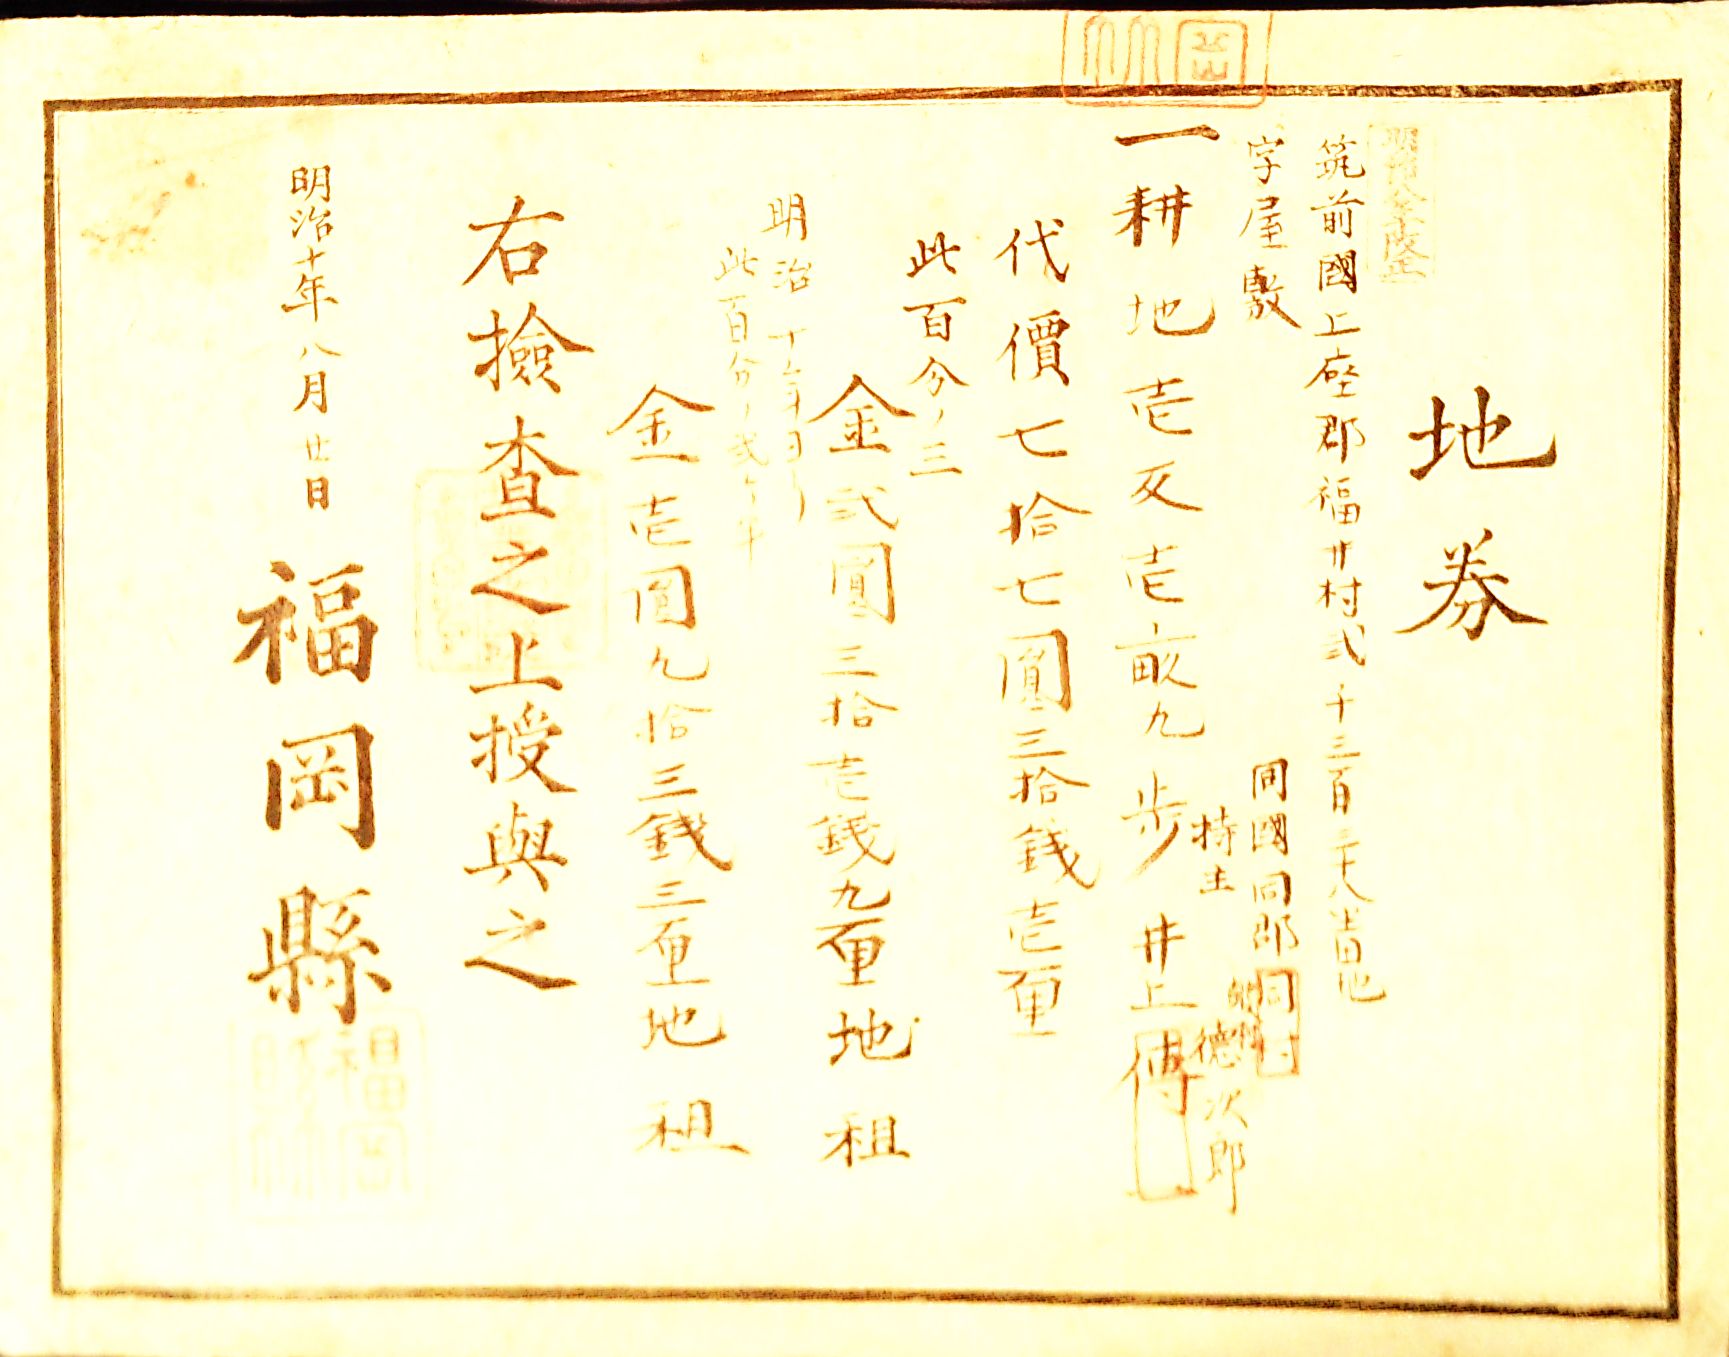 地券
筑前國上座郡福井村弐千三百三十八番田地
字屋敷
同國同郡同村
一耕地壱反壱畝九歩
持主
井上傳
德次郎
代價七拾七圓三拾錢壱厘
此百分ノ三
金弐圓三拾壱錢九厘地租
明治十年ヨリ
此百分ノ弐ヶ半
金壱圓九拾三錢三厘地租
右撿査之上授與之
明治十年八月廿日
福岡縣